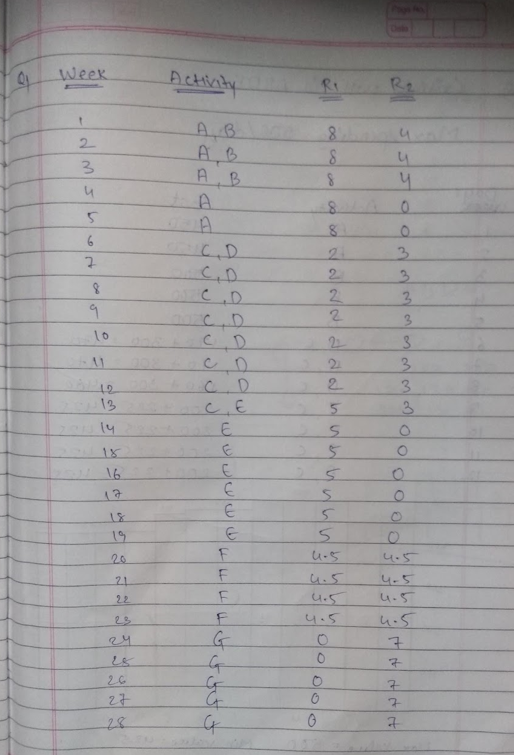 Page No.
Date
Q1 Week Activity R1 R2
1 A, B 8 4
2 A, B 8 4
3 A, B 8 4
4 A 8 0
5 A 8 0
6 C, D 2 3
7 C, D 2 3
8 C, D 2 3
9 C, D 2 3
10 C, D 2 3
11 C, D 2 3
12 C, D 2 3
13 C, E 5 3
14 E 5 0
15 E 5 0
16 E 5 0
17 E 5 0
18 E 5 0
19 E 5 0
20 F 4.5 4.5
21 F 4.5 4.5
22 F 4.5 4.5
23 F 4.5 4.5
24 G 0 7
25 G 0 7
26 G 0 7
27 G 0 7
28 G 0 7